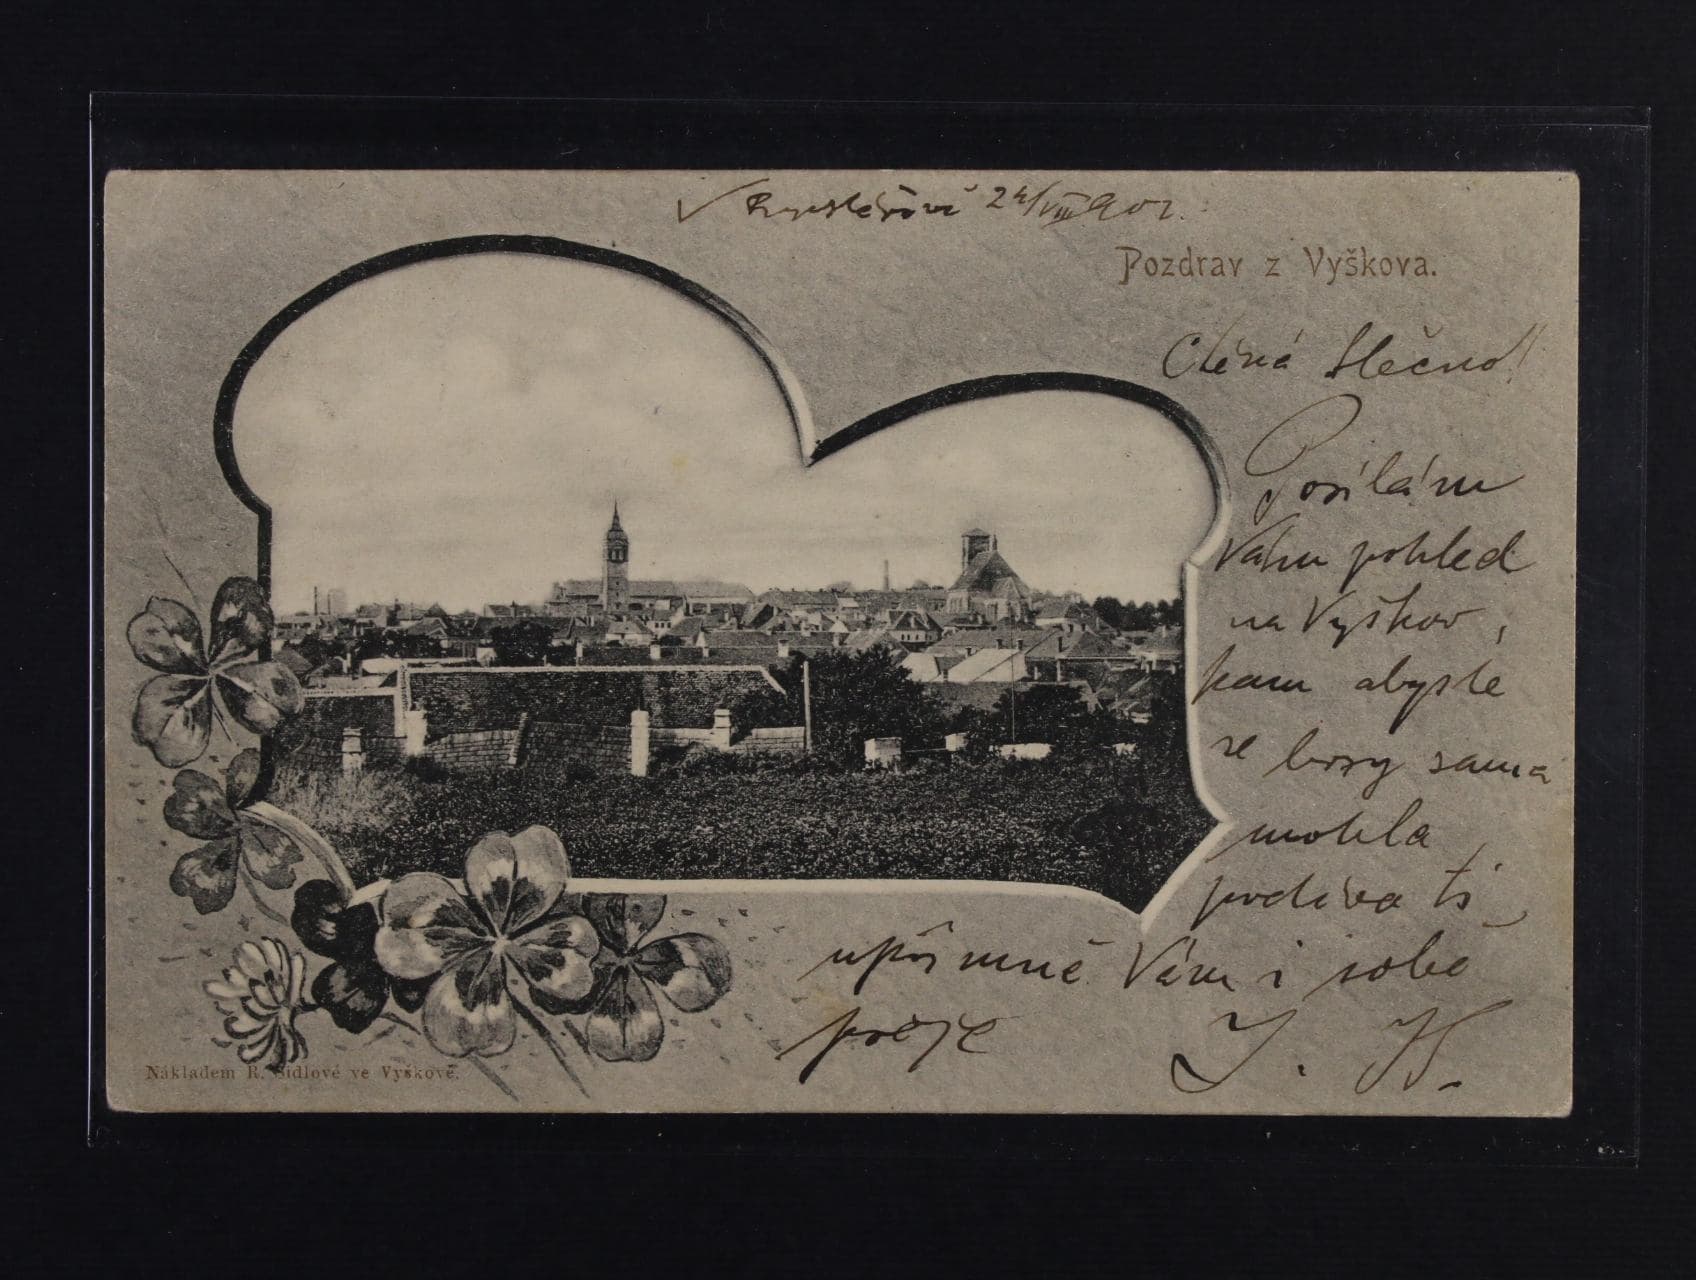 V 24/VIII 902.
Pozdrav z Vyškova.
Ctěná Slečno!
Posílám
Vám pohled
na Vyškov,
kam abyste
se brzy sama
mohla
podíva ti
upřímně Vám i sobě
přeje J. H.
Nákladem R. Sidlové ve Vyškově.